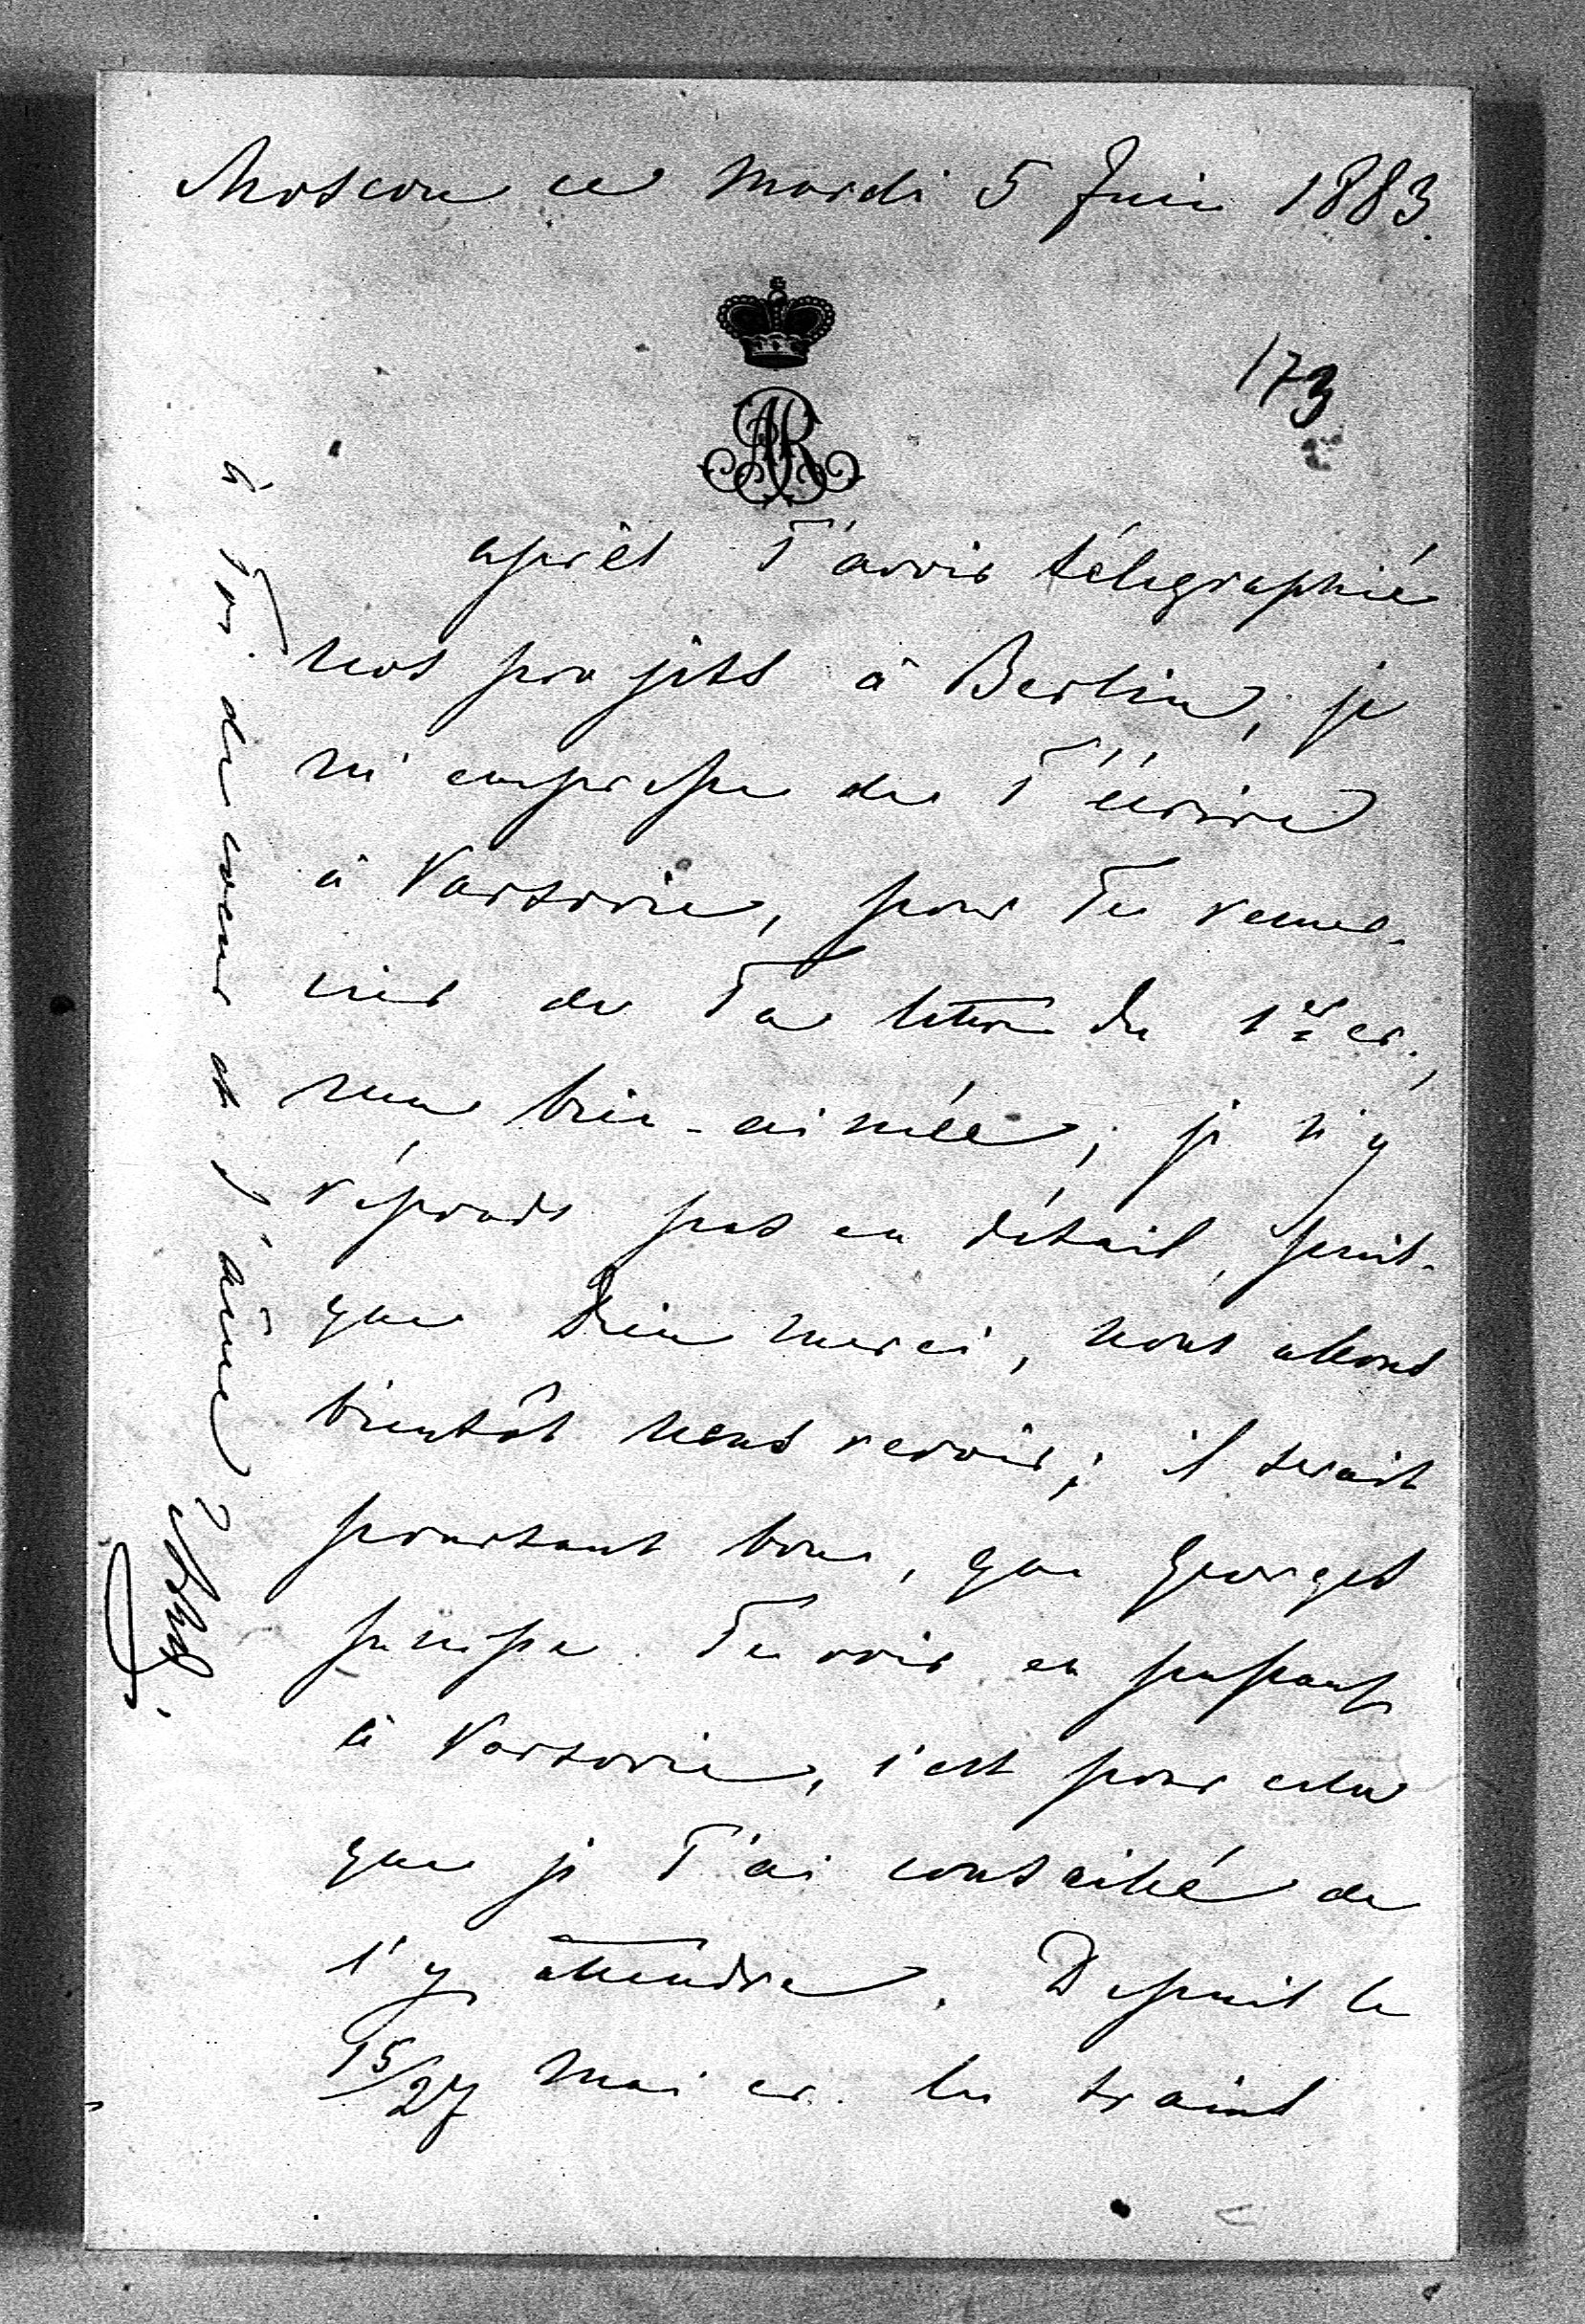 Moscou ce mardi 5 Juin 1883.
AR
173
après T'avoir télégraphié
nos projets à Berlin, je
m'empresse de T'écrire
à Varsovie, pour Te remer-
cier de Ta lettre du 1er cr.,
ma bien-aimée; je n'y
réponds pas en détail, puis-
que Dieu merci, nous allons
bientôt nous revoir; il serait
pourtant bon, que Georges
puisse Te voir en passant
à Varsovie, c'est pour cela
que je T'ai conseillé de
l'y attendre. Depuis le
15/27 mai cr. les trains
à Toi de coeur et d'âme